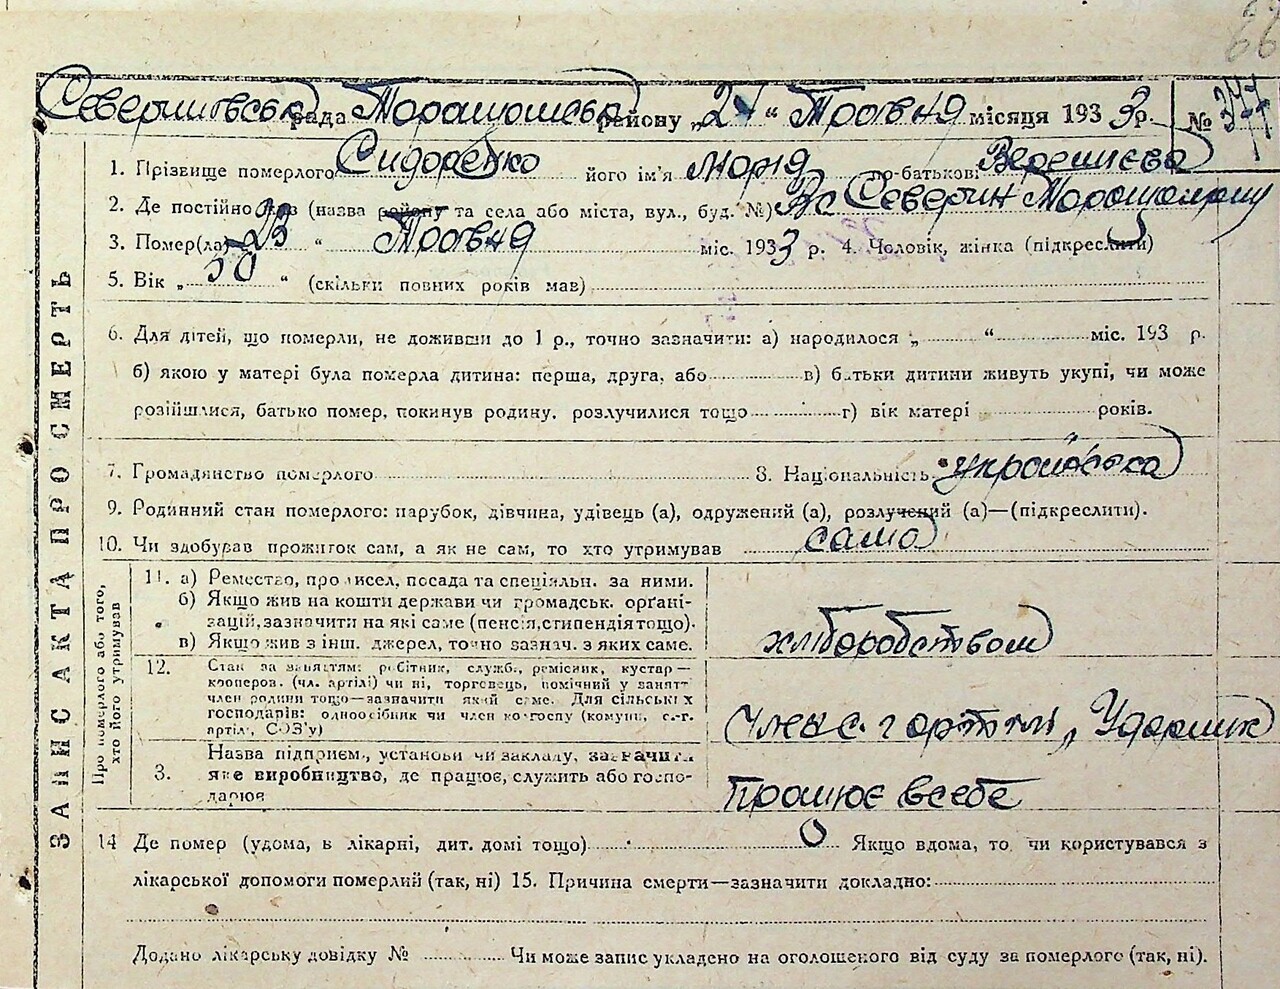 66
рада Таращанськ району „24“ Травня місяця 1933 р. № 377
1. Прізвище померлого Сидоренко його ім'я Марія по-батькові
2. Де постійно жив (назва району та села або міста, вул., буд. №)
3. Помер(ла) „23“ Травня міс. 1933 р. 4. Чоловік, жінка (підкреслити)
5. Вік „50“ (скільки повних років мав)
6. Для дітей, що померли, не доживши до 1 р., точно зазначити: а) народилося „ “ міс. 193 р.
б) якою у матері була померла дитина: перша, друга, або в) батьки дитини живуть укупі, чи може
розійшлися, батько помер, покинув родину, розлучилися тощо г) вік матері років.
7. Громадянство померлого 8. Національність українська
9. Родинний стан померлого: парубок, дівчина, удівець (а), одружений (а), розлучений (а)—(підкреслити).
10. Чи здобував прожиток сам, а як не сам, то хто утримував сама
ЗАПИС АКТА ПРО СМЕРТЬ
Про померлого або того,
хто його утримував
11. а) Ремество, промисел, посада та спеціяльн. за ними.
б) Якщо жив на кошти держави чи громадськ. орґані-
зацій, зазначити на які саме (пенсія, стипендія тощо).
в) Якщо жив з інш. джерел, точно зазнач. з яких саме.
хліборобством
12. Стан за заняттям: робітник, службо, ремісник, кустар—
кооперов. (чл. артілі) чи ні, торговець, помічний у занятт
член родини тощо—зазначити який саме. Для сільських
господарів: одноосібник чи член колгоспу (комуни, с.-г.
артілі, СОЗ'у)
член с. г артілі „Ударник
3. Назва підприєм., установи чи закладу, зазначити
яке виробництво, де працює, служить або госпо-
дарює
працює в себе
14 Де помер (удома, в лікарні, дит. домі тощо) Якщо вдома, то чи користувався з
лікарської допомоги померлий (так, ні) 15. Причина смерти—зазначити докладно:
Додано лікарську довідку № Чи може запис укладено на оголошеного від суду за померлого (так, ні).